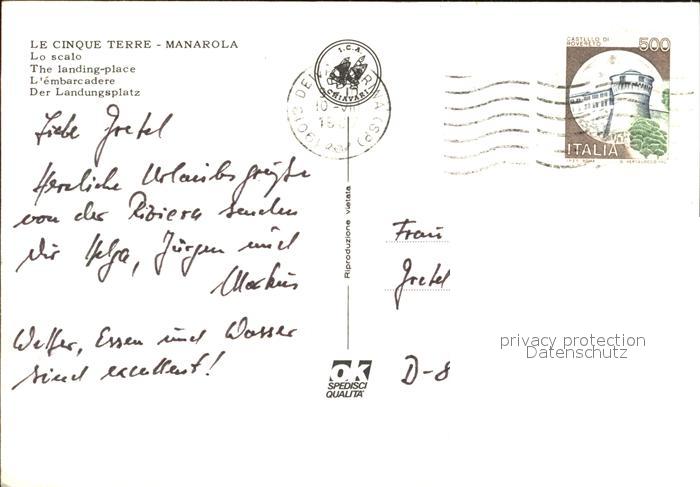 LE CINQUE TERRE - MANAROLA
Lo scalo
The landing-place
L'émbarcadere
Der Landungsplatz
I.C.A.
CHIAVARI
CASTELLO DI
ROVERETO
500
ITALIA
Liebe Gretel
Herzliche Urlaubsgrüße
von der Riviera senden
dir Helga, Jürgen und
Markus
Wetter, Essen und Wasser
sind excellent!
Riproduzione vietata
Frau
Gretel
D-8
privacy protection
Datenschutz
OK
SPEDISCI
QUALITA'